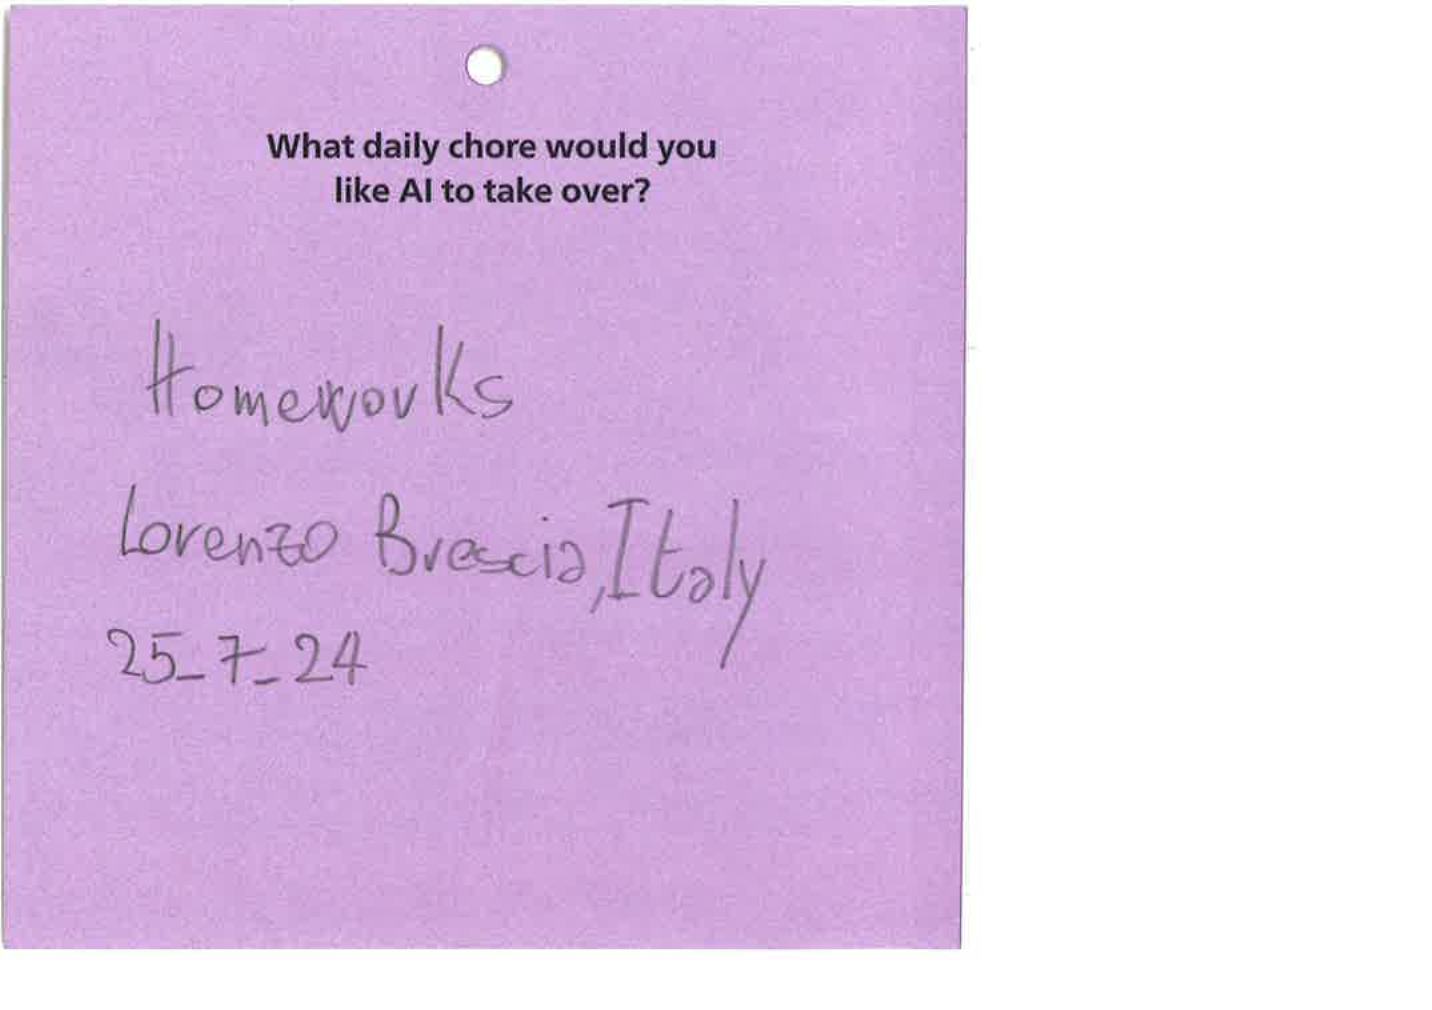 What daily chore would you
like AI to take over?
Homeworks
Lorenzo Brescia, Italy
25-7-24